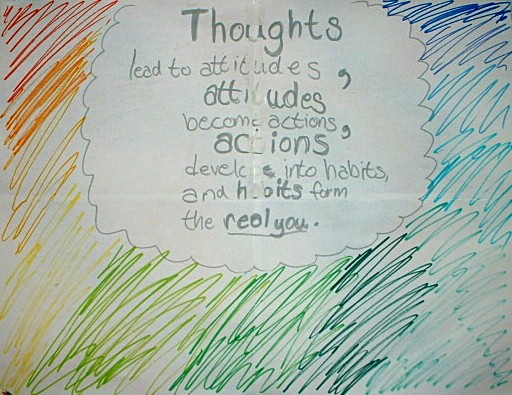 Thoughts
lead to attitudes,
attitudes
become actions,
actions
develop into habits,
and habits form
the real you.